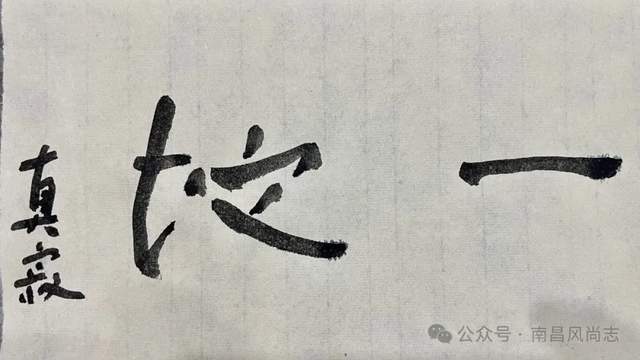 一
真寂
公众号 · 南昌风尚志